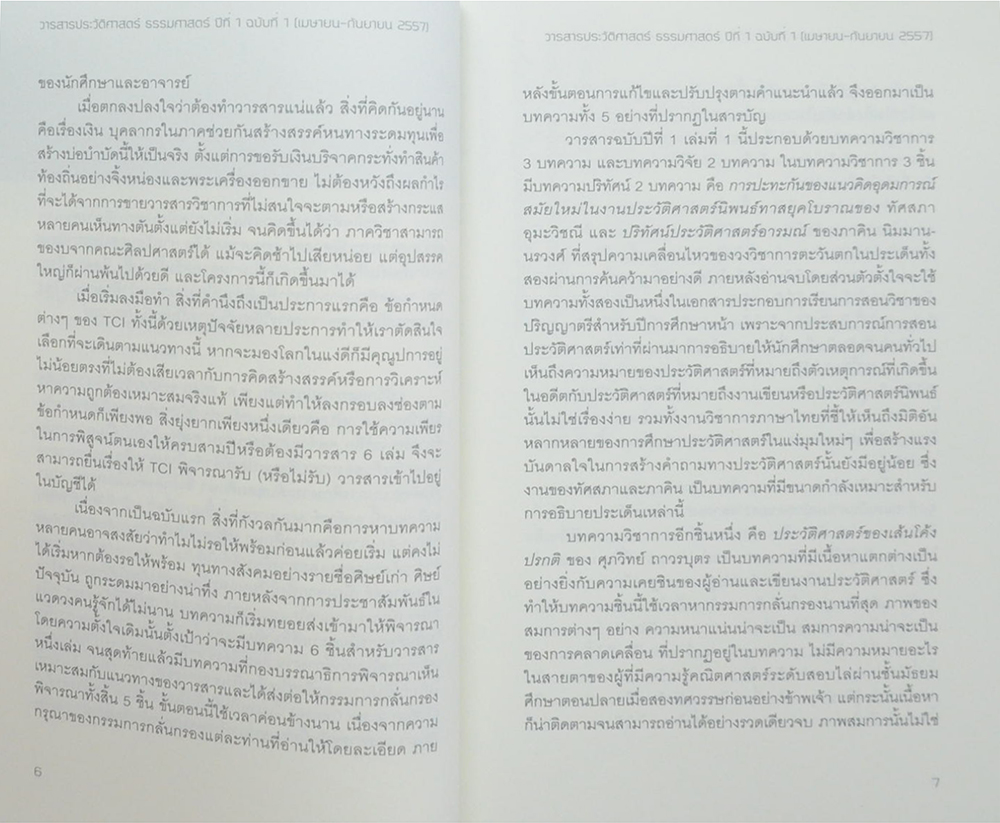 วารสารประวัติศาสตร์ ธรรมศาสตร์ ปีที่ 1 ฉบับที่ 1 (เมษายน-กันยายน 2557)
ของนักศึกษาและอาจารย์
เมื่อตกลงปลงใจว่าต้องทำวารสารแน่แล้ว สิ่งที่คิดกันอยู่นาน
คือเรื่องเงิน บุคลากรในภาคช่วยกันสร้างสรรค์หนทางระดมทุนเพื่อ
สร้างบ่อบำบัดนี้ให้เป็นจริง ตั้งแต่การขอรับเงินบริจาคกระทั่งทำสินค้า
ท้องถิ่นอย่างจิ้งหน่องและพระเครื่องออกขาย ไม่ต้องหวังถึงผลกำไร
ที่จะได้จากการขายวารสารวิชาการที่ไม่สนใจจะตามหรือสร้างกระแส
หลายคนเห็นทางตันตั้งแต่ยังไม่เริ่ม จนคิดขึ้นได้ว่า ภาควิชาสามารถ
ของบจากคณะศิลปศาสตร์ได้ แม้จะคิดช้าไปเสียหน่อย แต่อุปสรรค
ใหญ่ก็ผ่านพ้นไปด้วยดี และโครงการนี้ก็เกิดขึ้นมาได้
เมื่อเริ่มลงมือทำ สิ่งที่คำนึงถึงเป็นประการแรกคือ ข้อกำหนด
ต่างๆ ของ TCI ทั้งนี้ด้วยเหตุปัจจัยหลายประการทำให้เราตัดสินใจ
เลือกที่จะเดินตามแนวทางนี้ หากจะมองโลกในแง่ดีก็มีคุณูปการอยู่
ไม่น้อยตรงที่ไม่ต้องเสียเวลากับการคิดสร้างสรรค์หรือการวิเคราะห์
หาความถูกต้องเหมาะสมจริงแท้ เพียงแต่ทำให้ลงกรอบลงช่องตาม
ข้อกำหนดก็เพียงพอ สิ่งยุ่งยากเพียงหนึ่งเดียวคือ การใช้ความเพียร
ในการพิสูจน์ตนเองให้ครบสามปีหรือต้องมีวารสาร 6 เล่ม จึงจะ
สามารถยื่นเรื่องให้ TCI พิจารณารับ (หรือไม่รับ) วารสารเข้าไปอยู่
ในบัญชีได้
เนื่องจากเป็นฉบับแรก สิ่งที่กังวลกันมากคือการหาบทความ
หลายคนอาจสงสัยว่าทำไมไม่รอให้พร้อมก่อนแล้วค่อยเริ่ม แต่คงไม่
ได้เริ่มหากต้องรอให้พร้อม ทุนทางสังคมอย่างรายชื่อศิษย์เก่า ศิษย์
ปัจจุบัน ถูกระดมมาอย่างน่าทึ่ง ภายหลังจากการประชาสัมพันธ์ใน
แวดวงคนรู้จักได้ไม่นาน บทความก็เริ่มทยอยส่งเข้ามาให้พิจารณา
โดยความตั้งใจเดิมนั้นตั้งเป้าว่าจะมีบทความ 6 ชิ้นสำหรับวารสาร
หนึ่งเล่ม จนสุดท้ายแล้วมีบทความที่กองบรรณาธิการพิจารณาเห็น
เหมาะสมกับแนวทางของวารสารและได้ส่งต่อให้กรรมการกลั่นกรอง
พิจารณาทั้งสิ้น 5 ชิ้น ขั้นตอนนี้ใช้เวลาค่อนข้างนาน เนื่องจากความ
กรุณาของกรรมการกลั่นกรองแต่ละท่านที่อ่านให้โดยละเอียด ภาย
6
วารสารประวัติศาสตร์ ธรรมศาสตร์ ปีที่ 1 ฉบับที่ 1 (เมษายน-กันยายน 2557)
หลังขั้นตอนการแก้ไขและปรับปรุงตามคำแนะนำแล้ว จึงออกมาเป็น
บทความทั้ง 5 อย่างที่ปรากฏในสารบัญ
วารสารฉบับปีที่ 1 เล่มที่ 1 นี้ประกอบด้วยบทความวิชาการ
3 บทความ และบทความวิจัย 2 บทความ ในบทความวิชาการ 3 ชิ้น
มีบทความปริทัศน์ 2 บทความ คือ การปะทะกันของแนวคิดอุดมการณ์
สมัยใหม่ในงานประวัติศาสตร์นิพนธ์ทาสยุคโบราณของ ทัศสภา
อุมะวิชนี และ ปริทัศน์ประวัติศาสตร์อารมณ์ ของภาคิน นิมมาน-
นรวงศ์ ที่สรุปความเคลื่อนไหวของวงวิชาการตะวันตกในประเด็นทั้ง
สองผ่านการค้นคว้ามาอย่างดี ภายหลังอ่านจบโดยส่วนตัวตั้งใจจะใช้
บทความทั้งสองเป็นหนึ่งในเอกสารประกอบการเรียนการสอนวิชาของ
ปริญญาตรีสำหรับปีการศึกษาหน้า เพราะจากประสบการณ์การสอน
ประวัติศาสตร์เท่าที่ผ่านมาการอธิบายให้นักศึกษาตลอดจนคนทั่วไป
เห็นถึงความหมายของประวัติศาสตร์ที่หมายถึงตัวเหตุการณ์ที่เกิดขึ้น
ในอดีตกับประวัติศาสตร์ที่หมายถึงงานเขียนหรือประวัติศาสตร์นิพนธ์
นั้นไม่ใช่เรื่องง่าย รวมทั้งงานวิชาการภาษาไทยที่ชี้ให้เห็นถึงมิติอัน
หลากหลายของการศึกษาประวัติศาสตร์ในแง่มุมใหม่ๆ เพื่อสร้างแรง
บันดาลใจในการสร้างคำถามทางประวัติศาสตร์นั้นยังมีอยู่น้อย ซึ่ง
งานของทัศสภาและภาคิน เป็นบทความที่มีขนาดกำลังเหมาะสำหรับ
การอธิบายประเด็นเหล่านี้
บทความวิชาการอีกชิ้นหนึ่ง คือ ประวัติศาสตร์ของเส้นโค้ง
ปรกติ ของ ศุภวิทย์ ถาวรบุตร เป็นบทความที่มีเนื้อหาแตกต่างเป็น
อย่างยิ่งกับความเคยชินของผู้อ่านและเขียนงานประวัติศาสตร์ ซึ่ง
ทำให้บทความชิ้นนี้ใช้เวลาหากรรมการกลั่นกรองนานที่สุด ภาพของ
สมการต่างๆ อย่าง ความหนาแน่นน่าจะเป็น สมการความน่าจะเป็น
ของการคลาดเคลื่อน ที่ปรากฏอยู่ในบทความ ไม่มีความหมายอะไร
ในสายตาของผู้ที่มีความรู้คณิตศาสตร์ระดับสอบไล่ผ่านชั้นมัธยม
ศึกษาตอนปลายเมื่อสองทศวรรษก่อนอย่างข้าพเจ้า แต่กระนั้นเนื้อหา
ก็น่าติดตามจนสามารถอ่านได้อย่างรวดเดียวจบ ภาพสมการนั้นไม่ใช่
7